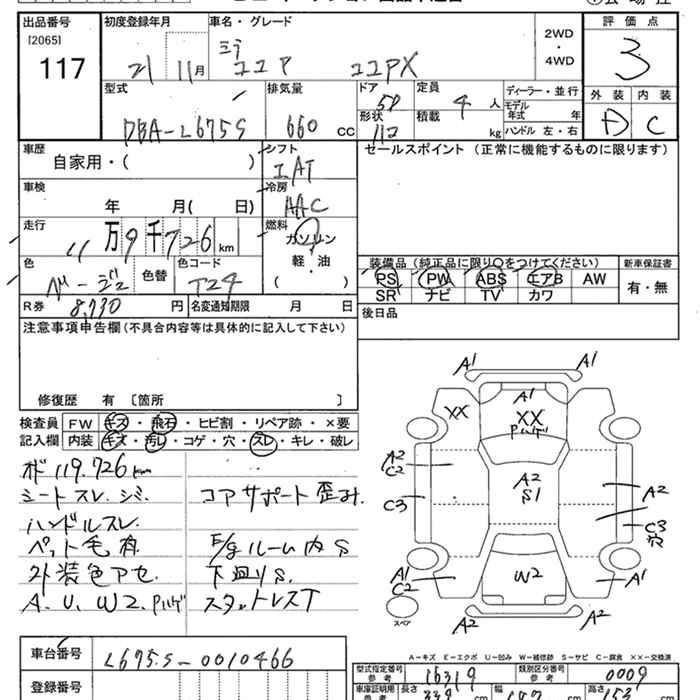 出品番号 初度登録年月 車名・グレード 評価点
[2065] ミラ 2WD・4WD 3
117 21 11月 ココア ココアX
外装 内装
型式 排気量 ドア 定員 ディーラー・並行
5D 4人 モデル年式 年 D C
DBA-L675S 660 CC 形状 積載 kg ハンドル 左・右
車歴 シフト セールスポイント (正常に機能するものに限ります)
自家用・( ) IAT
車検 冷房
年 月( 日) AAC
走行 燃料
11万9千726km ガソリン
軽・油
( )
色 色替 色コード 装備品 (純正品に限り○をつけてください) 新車保証書
ベージュ T24 PS PW ABS エアB AW 有・無
SR ナビ TV カワ
R券 8,730円 名変通知期限 月 日 後日品
注意事項申告欄(不具合内容等は具体的に記入して下さい)
修復歴 有 〔箇所 〕
検査員 FW キズ・飛石・ヒビ割・リペア跡・×要
記入欄 内装 キズ・汚レ・コゲ・穴・スレ・キレ・破レ
オド 119.726km
シートスレ.シミ. コアサポート歪み.
ハンドルスレ
ペット毛有. F/gルーム内S
外装色アセ. 下廻りS.
A.U.W2.Pハゲ スタットレスT
A1 A1
A1
XX XX
Pハゲ
A2
C2
A2
S1
A2
C3 C3
穴
A1
C2
W2 A1
A2 A2
スペア
A－キズ E－エクボ U－凹み W－補修跡 S－サビ C－腐食 XX－交換済
車台番号 L675S-0010466
登録番号
型式指定番号 参考 16319 類別区分番号 参考 0009
車庫証明用 参考 長さ 339 cm 幅 147 cm 高さ 153